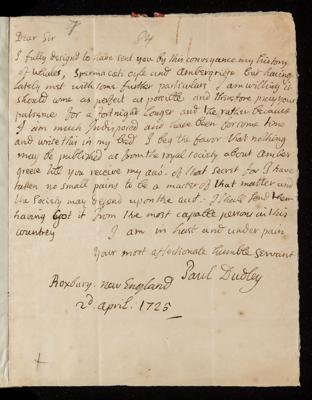 7
84
Dear Sir
I fully designed to have sent you by this conveyance my history
of whales, Spermaceti oyle and Ambergriese but having
lately met with some further particulars I am willing it
should come as perfect as possible and therefore pray your
patience for a fortnight longer and the rather because
I am much Indisposed and have been for some time
and write this in my bed I beg the favor that nothing
may be published at from the royal society about Amber
greese till you receive my acco. of that secret for I have
taken no small pains to be a master of that matter and
the Society may depend upon the acct. I shall send
having Got it from the most capable persons in this
countrey I am in hast and under pain
Your most affectionate humble Servant
Paul Dudley
Roxbury. new England
2d. april. 1725